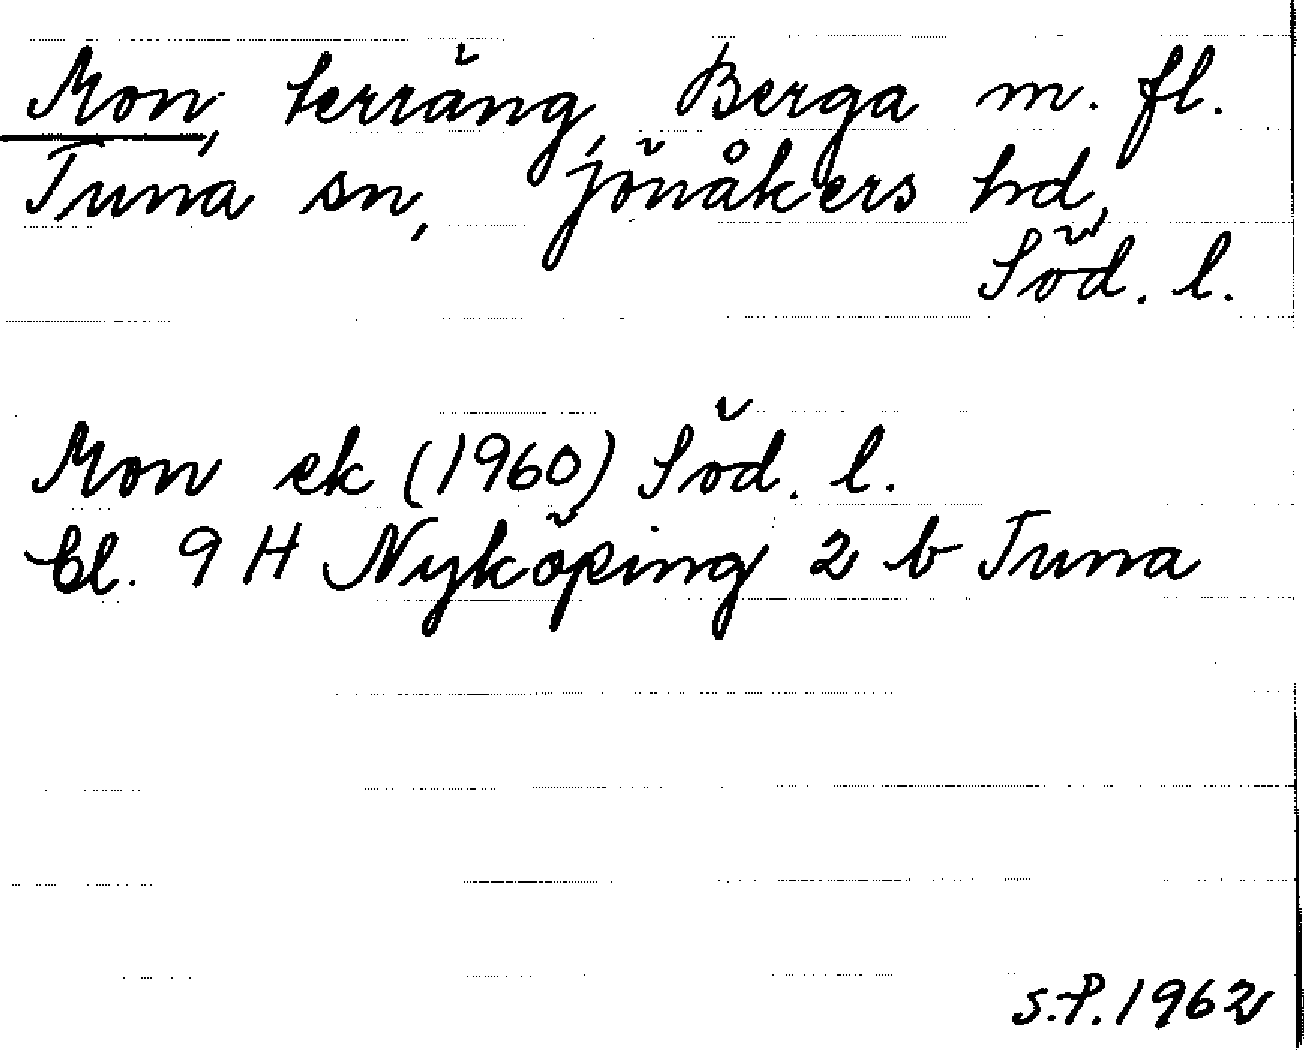 Mon, terräng, Berga m. fl.
Tuna sn, Jönåkers hd,
Söd. l.
Mon ek (1960) Söd. l.
bl. 9 H Nyköping 2 b Tuna
S.P. 1962